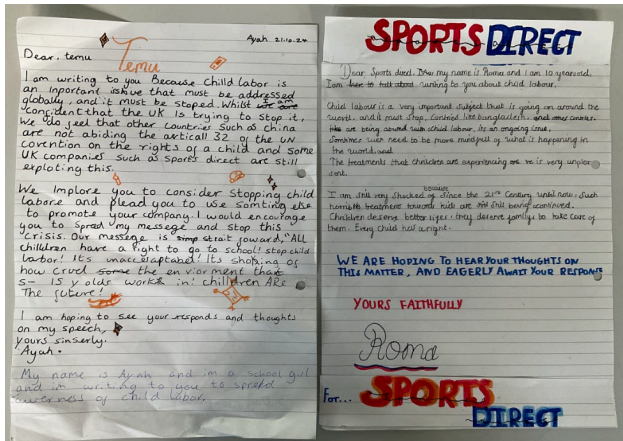 Ayah. 21.10.24
Dear. temu
Temu
I am writing to you Because Child Labor is
an inportant issue that must be addressed
globally, and it must be stoped. Whilst I am
confident that the UK is trying to stop it,
we do feel that other countries such as china
are not abiding the articall 32 of the UN
covention on the rights of a child and some
UK companies such as sports direct are still
exploting this.
We Implore you to consider stopping child
labore and plead you to use somting else
to promote your company. I would encourage
you to spread my messege and stop this
crisis. Our messege is strait foward, "All
children have a right to go to school! stop child
labor! It's unacceptabel! Its shoking of
how cruel the enviorment that
5- 15 y olds work in! children ARe
The future!
I am hoping to see your responds and thoughts
on my speech,
yours sinserly.
Ayah.
My name is Ayah and im a school girl
and im writing to you to spread
awerness of child labor.
SPORTS DIRECT
Dear, Sports direct. my name is Roma and I am 10 years old.
I am writing to you about child labour.
Child labour is a very important subject that is going on around the
world, and it must stop. Countries like bangladesh,
are being abused with child labour, its an ongoing issue,
we need to be more mindful of what is happening in
the world, and
The treatments that children are experiencing is very unplea-
sant.
I am still very shocked because since the 21st Century until now, such
horrible treatment towards kids are still being continued.
Children deserve better lifes, they deserve family to take care of
them. Every child has a right.
WE ARE HOPING TO HEAR YOUR THOUGHTS ON
THIS MATTER, AND EAGERLY AWAIT YOUR RESPONSE
YOURS FAITHFULLY
Roma
For... SPORTS
DIRECT